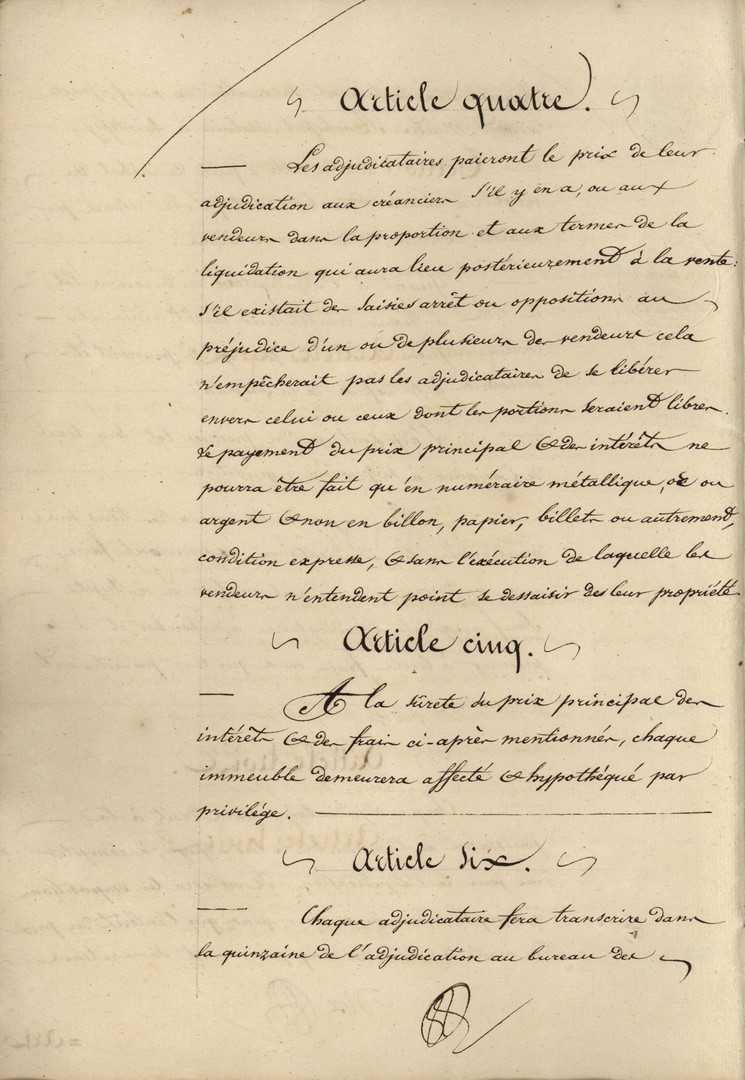 Article quatre.
Les adjudicataires paieront le prix de leur
adjudication aux créanciers s'il y en a, ou aux
vendeurs dans la proportion et aux termes de la
liquidation qui aura lieu postérieurement à la vente :
s'il existait des saisies arrêt ou oppositions au
préjudice d'un ou de plusieurs des vendeurs cela
n'empêcherait pas les adjudicataires de se libérer
envers celui ou ceux dont les portions seraient libres.
Le payement du prix principal & des intérêts ne
pourra être fait qu'en numéraire métallique, or ou
argent & non en billon, papier, billets ou autrement,
condition expresse, & sans l'exécution de laquelle les
vendeurs n'entendent point se dessaisir des leur propriété.
Article cinq.
A la sûrete du prix principal des
intérêts & des frais ci-après mentionnés, chaque
immeuble demeurera affecté & hypothéqué par
privilége.
Article six.
Chaque adjudicataire fera transcrire dans
la quinzaine de l'adjudication au bureau des